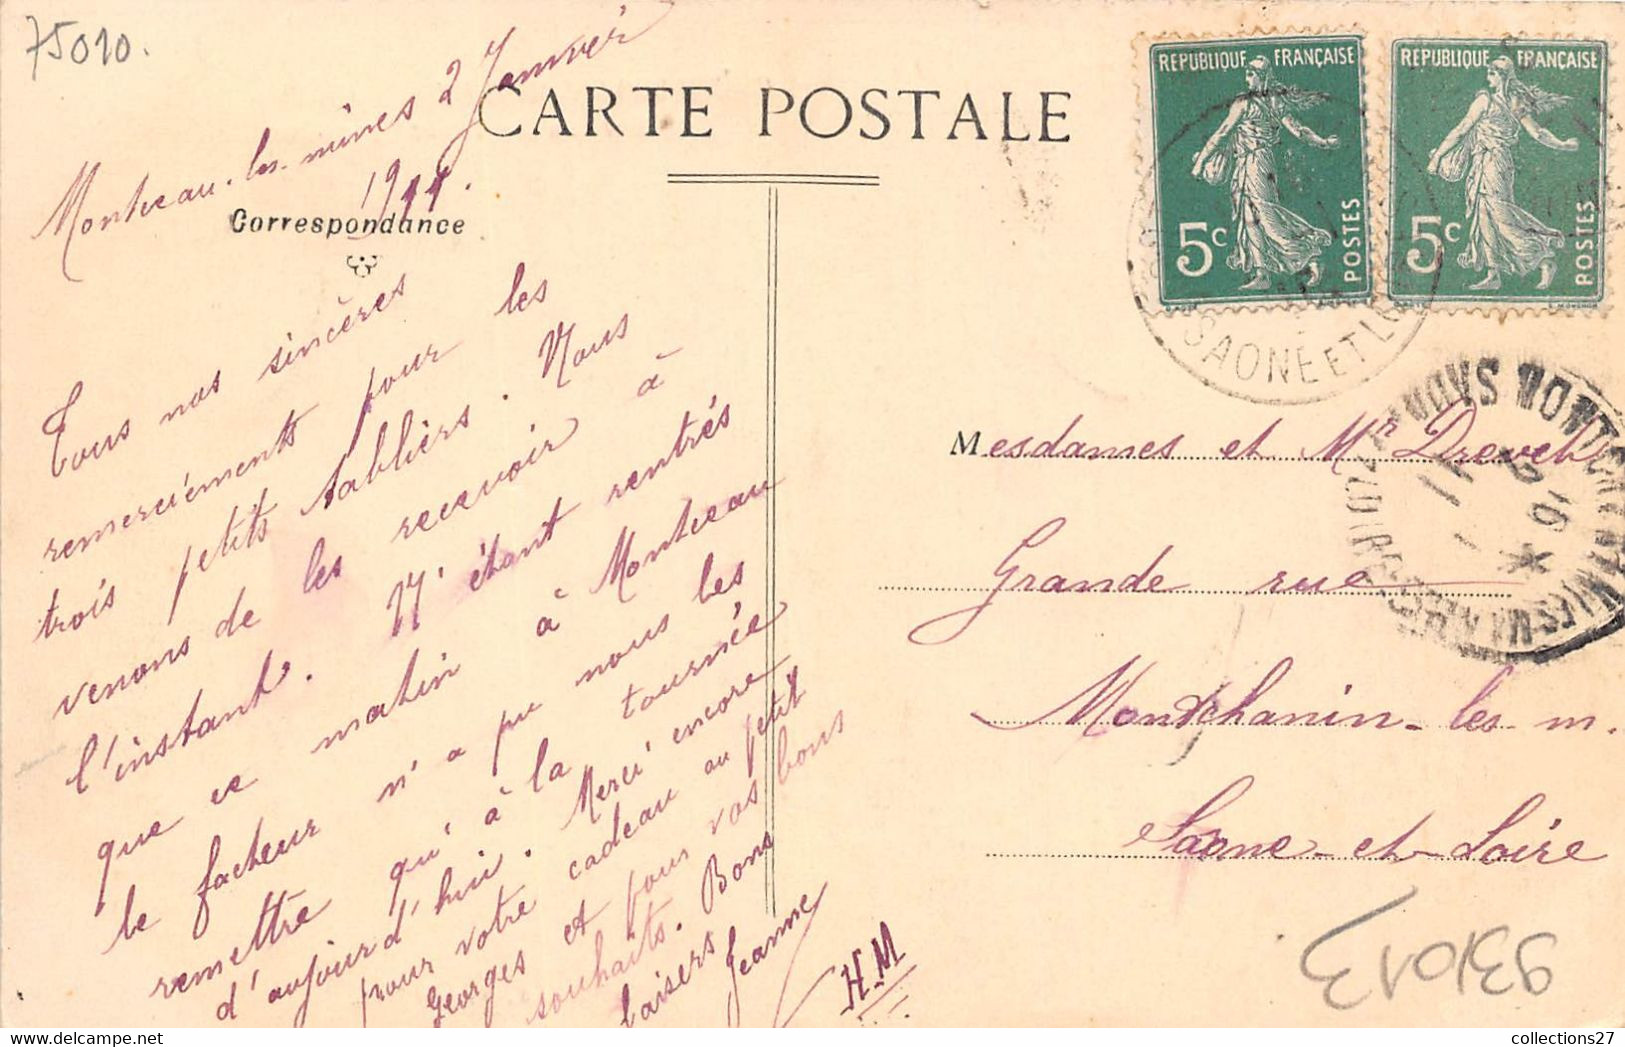 75010.
CARTE POSTALE
Correspondance
Montceau-les-mines 2 Janvier
1911.
Tous nos sincères
remerciements pour les
trois petits tabliers. Nous
venons de les recevoir à
l'instant. M. étant rentrés
que ce matin à Montceau
le facteur n'a pu nous les
remettre qu'à la tournée
d'aujourd'hui. Merci encore
pour votre cadeau au petit
Georges et pour vos bons
souhaits. Bons
baisers
Jeanne
H M
REPUBLIQUE FRANÇAISE
5c
POSTES
REPUBLIQUE FRANÇAISE
5c
POSTES
SAONE ET L
Mesdames et Mr Drevet
Grande rue
Montchanin-les m.
Saone-et-Loire
93013
collections27